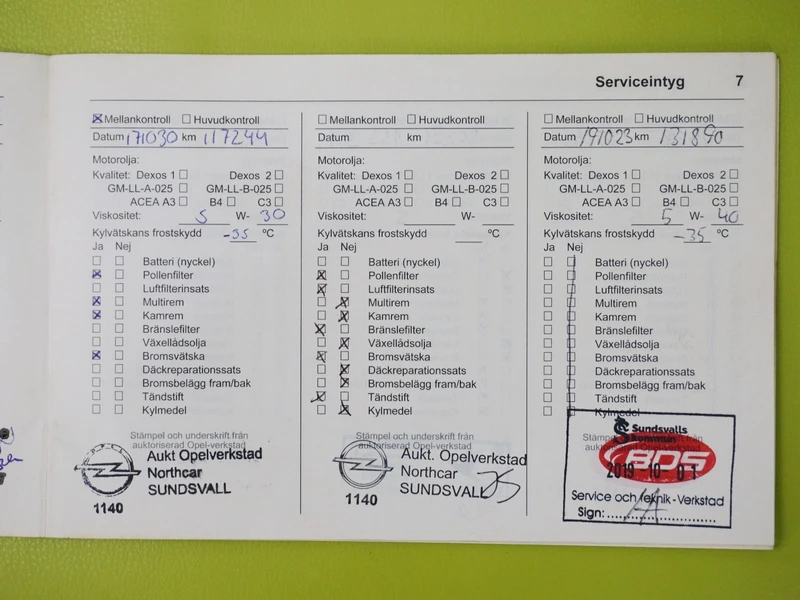 Serviceintyg 7
Mellankontroll Huvudkontroll
Datum 171030 km 117244
Motorolja:
Kvalitet: Dexos 1 Dexos 2
GM-LL-A-025 GM-LL-B-025
ACEA A3 B4 C3
Viskositet: 5 W- 30
Kylvätskans frostskydd -35 ºC
Ja Nej
Batteri (nyckel)
Pollenfilter
Luftfilterinsats
Multirem
Kamrem
Bränslefilter
Växellådsolja
Bromsvätska
Däckreparationssats
Bromsbelägg fram/bak
Tändstift
Kylmedel
Stämpel och underskrift från
auktoriserad Opel-verkstad
Aukt Opelverkstad
Northcar
SUNDSVALL
1140
Mellankontroll Huvudkontroll
Datum km
Motorolja:
Kvalitet: Dexos 1 Dexos 2
GM-LL-A-025 GM-LL-B-025
ACEA A3 B4 C3
Viskositet: W-
Kylvätskans frostskydd ºC
Ja Nej
Batteri (nyckel)
Pollenfilter
Luftfilterinsats
Multirem
Kamrem
Bränslefilter
Växellådsolja
Bromsvätska
Däckreparationssats
Bromsbelägg fram/bak
Tändstift
Kylmedel
Stämpel och underskrift från
auktoriserad Opel-verkstad
Aukt. Opelverkstad
Northcar
SUNDSVALL
1140
Mellankontroll Huvudkontroll
Datum 191023 km 131890
Motorolja:
Kvalitet: Dexos 1 Dexos 2
GM-LL-A-025 GM-LL-B-025
ACEA A3 B4 C3
Viskositet: 5 W- 40
Kylvätskans frostskydd -35 ºC
Ja Nej
Batteri (nyckel)
Pollenfilter
Luftfilterinsats
Multirem
Kamrem
Bränslefilter
Växellådsolja
Bromsvätska
Däckreparationssats
Bromsbelägg fram/bak
Tändstift
Kylmedel
Sundsvalls
kommun
2019-10-01
Service och teknik - Verkstad
Sign: